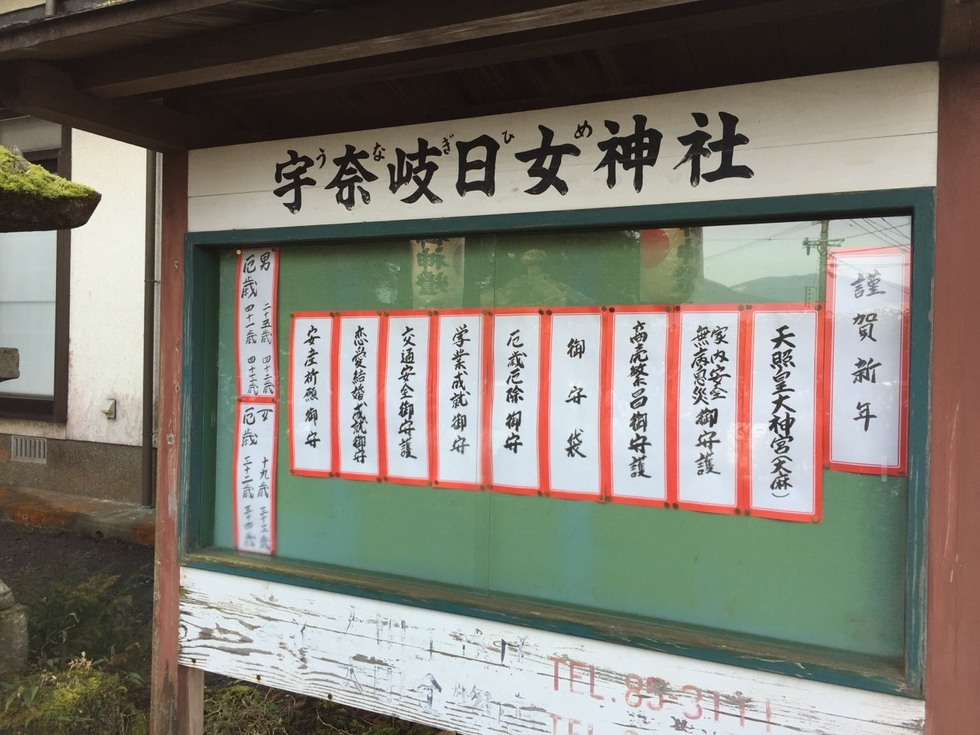 宇奈岐日女神社
うなぎひめ
謹賀新年
天照皇大神宮(大麻)
家内安全
無病息災
御守護
商売繁昌御守護
御守袋
厄歳厄除御守
学業成就御守
交通安全御守護
恋愛結婚成就御守
安産祈願御守
男
厄歳
二十五歳 四十二歳
四十一歳 四十三歳
女
厄歳
十九歳 三十三歳
三十二歳 三十四歳
TEL.85-3111
TEL